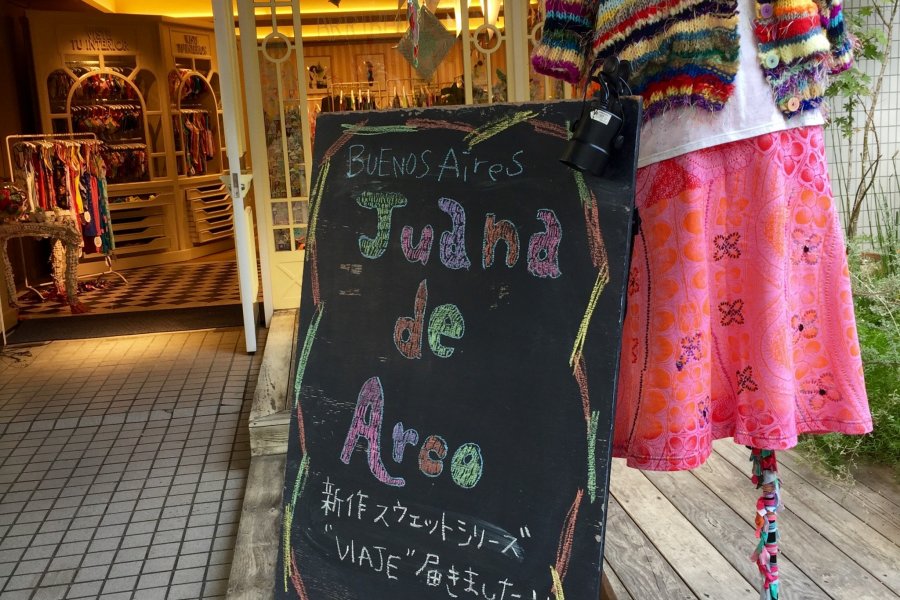 TU INTERIOR
BUENOS AIres
Juana
de
Arco
新作スウェットシリーズ
"VIAJE"届きました